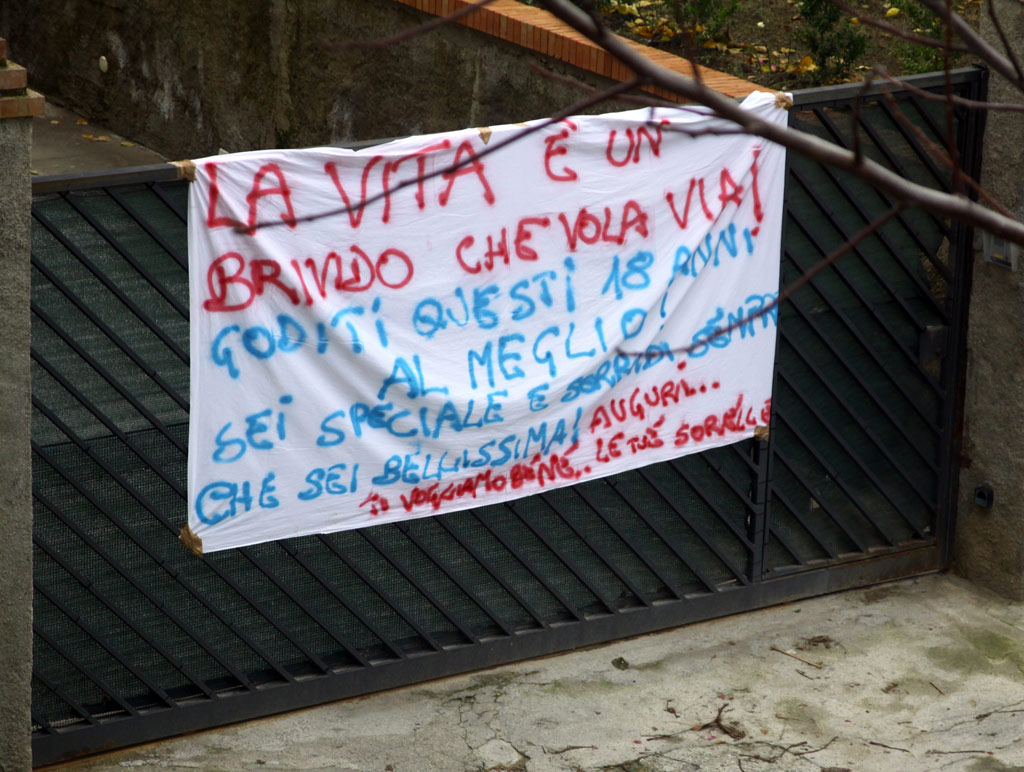 LA VITA É UN
BRIVIDO CHE VOLA VIA!
GODITI QUESTI 18 ANNI
AL MEGLIO!
SEI SPECIALE E SORRIDI SEMPRE
CHE SEI BELLISSIMA! AUGURI...
TI VOGGIAMO BENE.. LE TUE SORELLE